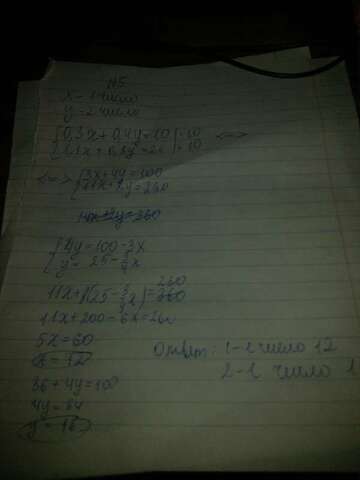 №5
x - 1 число
y = 2 число
{0,3x + 0,4y = 10 | · 10 <=>
{1,1x + 0,8y = 26 | · 10
<=> {3x + 4y = 100
{11x + 8y = 260
{4y = 100 - 3x
{y = 25 - 3/4x
260
11x + 8(25 - 3/4x) = 360
11x + 200 - 6x = 260
5x = 60
x = 12
36 + 4y = 100
4y = 64
y = 16
Ответ: 1-е число 12
2-е число 1